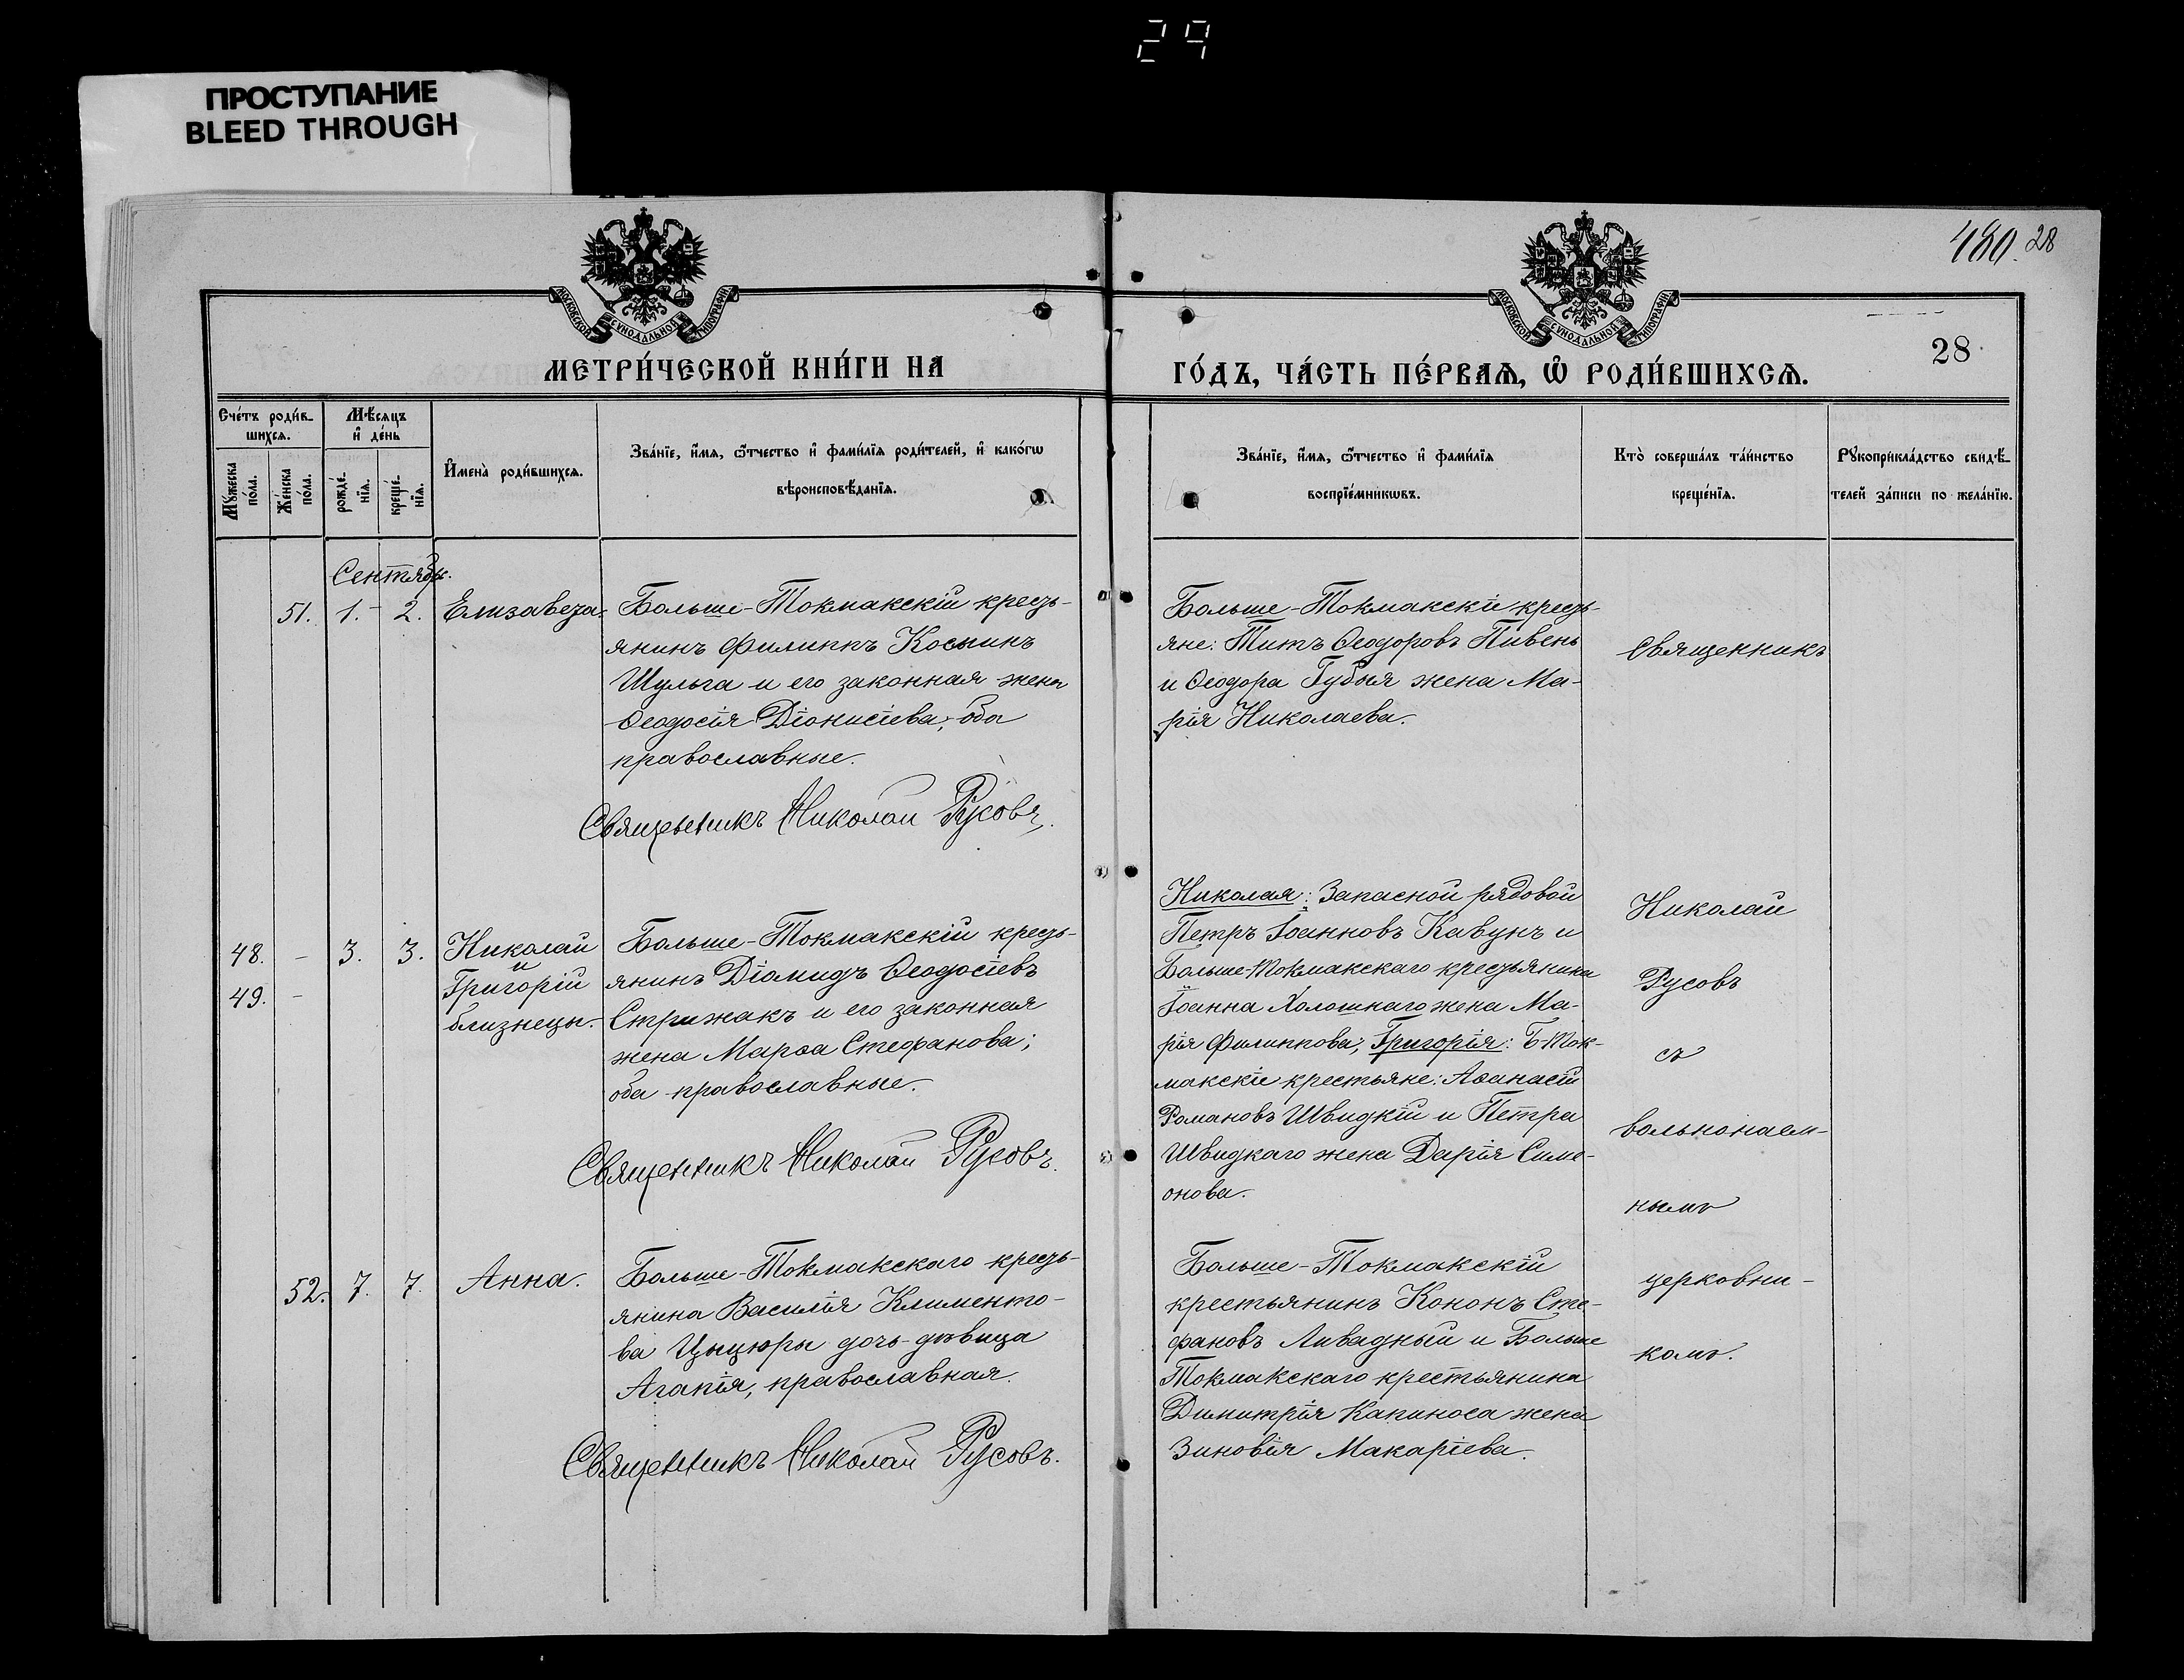 29
ПРОСТУПАНИЕ
BLEED THROUGH
480. 28
МОСКОВСКОЙ СѴНОДАЛЬНОЙ ТИПОГРАФІИ
МОСКОВСКОЙ СѴНОДАЛЬНОЙ ТИПОГРАФІИ
28
МЕТРИ́ЧЕСКОЙ КНИ́ГИ НА
ГО́ДЪ, ЧА́СТЬ ПЕ́РВАѦ, Ѽ РОДИ́ВШИХСѦ.
Сче́тъ роди́в-
шихсѧ.
Мꙋ́жеска
по́ла.
Же́нска
по́ла.
Мѣ́сѧцъ
и҆ де́нь
рожде́-
нїѧ.
креще́-
нїѧ.
И҆мена̀ роди́вшихсѧ.
Зва́нїе, и҆́мѧ, ѻ҆́тчество и҆ фами́лїѧ роди́телей, и҆ како́гѡ
вѣроисповѣ́данїѧ.
Зва́нїе, и҆́мѧ, ѻ҆́тчество и҆ фами́лїѧ
воспрїе́мникѡвъ.
Кто̀ соверша́лъ та́инство
креще́нїѧ.
Рꙋкоприкла́дство свидѣ́-
телей за́писи по жела́нїю.
Сентябрь.
51. 1. - 2. Елизавета.
Больше-Токмакскій кресть-
янинъ Филиппъ Косминъ
Шульга и его законная жена
Ѳеодосія Діонисіева, оба
православные.
Священникъ Николай Русовъ.
Больше-Токмакскіе кресть-
яне: Титъ Ѳеодоровъ Пивень
и Ѳеодора Губыя жена Ма-
рія Николаева.
Священникъ
Николай
Русовъ
съ
вольнонаем-
нымъ
церковни-
комъ.
48. - 3. 3. Николай
и
49. - Григорій
близнецы.
Больше-Токмакскій кресть-
янинъ Діомидъ Ѳеодосіевъ
Стрижакъ и его законная
жена Марѳа Стефанова;
оба православные.
Священникъ Николай Русовъ.
Николая: Запасной рядовой
Петръ Іоанновъ Кавунъ и
Больше-Токмакскаго крестьянина
Іоанна Холошнаго жена Ма-
рія Филиппова; Григорія: Б-Ток-
макскіе крестьяне: Аѳанасій
Романовъ Швидкій и Петра
Швидкаго жена Дарія Симе-
онова.
52. 7. 7. Анна.
Больше-Токмакскаго кресть-
янина Василія Климento-
ва Цыцюры дочь-дѣвица
Агапія, православная.
Священникъ Николай Русовъ.
Больше-Токмакскій
крестьянинъ Кононъ Сте-
фановъ Ливадный и Больше
Токмакскаго крестьянина
Димитрія Капиноса жена
Зиновія Макаріева.